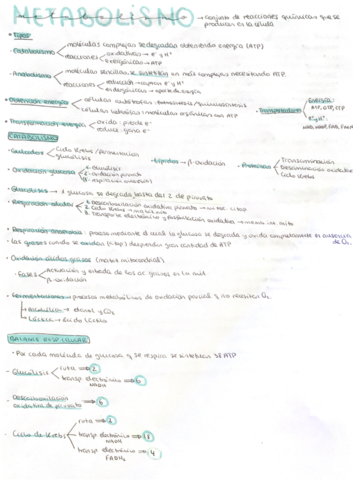 METABOLISMO → conjunto de reacciones químicas que se
producen en la célula
· Tipos
- Catabolismo
moléculas complejas se degradan obteniendo energía (ATP)
reacciones
oxidativas → e⁻ y H⁺
exergónicas → ATP
- Anabolismo
moléculas sencillas se sintetizan en más complejas necesitando ATP
reacciones
reducción → captan e⁻ y H⁺
endergónicas → aporte de energía
· Obtención energía
células autótrofas
células heterótrofas: moléculas orgánicas con ATP
· Transportadores
Energía:
ATP, GTP, CTP
e⁻ y H⁺:
· Transformación energía
oxida: pierde e⁻
reduce: gana e⁻
CATABOLISMO
· Glúcidos
Ciclo Krebs / Fermentación
glucólisis
· Lípidos → β-oxidación
· Proteínas
Transaminación
Desaminación oxidativa
Ciclo Krebs
· Oxidación glucosa
1- glucólisis
2- oxidación piruvato
3- respiración
· Glucólisis → 1 glucosa se degrada hasta dar 2 de piruvato
· Respiración celular
1. Descarboxilación oxidativa piruvato →
2. Ciclo Krebs → matriz mit.
3. Transporte electrónico y fosforilación oxidativa →
· Respiración anaerobia: proceso mediante el cual la glucosa se degrada y oxida completamente en ausencia
de O₂
· Las grasas cuando se oxidan desprenden gran cantidad de ATP
· Oxidación ácidos grasos (matriz mitocondrial)
- Fases
Activación y entrada de los ac. grasos en la mit
β-oxidación
· Fermentaciones: procesos metabólicos de oxidación parcial y no necesitan O₂
Alcohólica → etanol y CO₂
Láctica → ácido láctico
BALANCE RESP CELULAR
· Por cada molécula de glucosa que se respira se sintetizan 38 ATP
· Glucólisis
ruta ⇒ 2
transp electrónico ⇒ 6
NADH
· Descarboxilación
oxidativa de piruvato ⇒ 6
· Ciclo de Krebs
ruta ⇒ 2
transp electrónico ⇒ 18
NADH
transp electrónico ⇒ 4
FADH₂